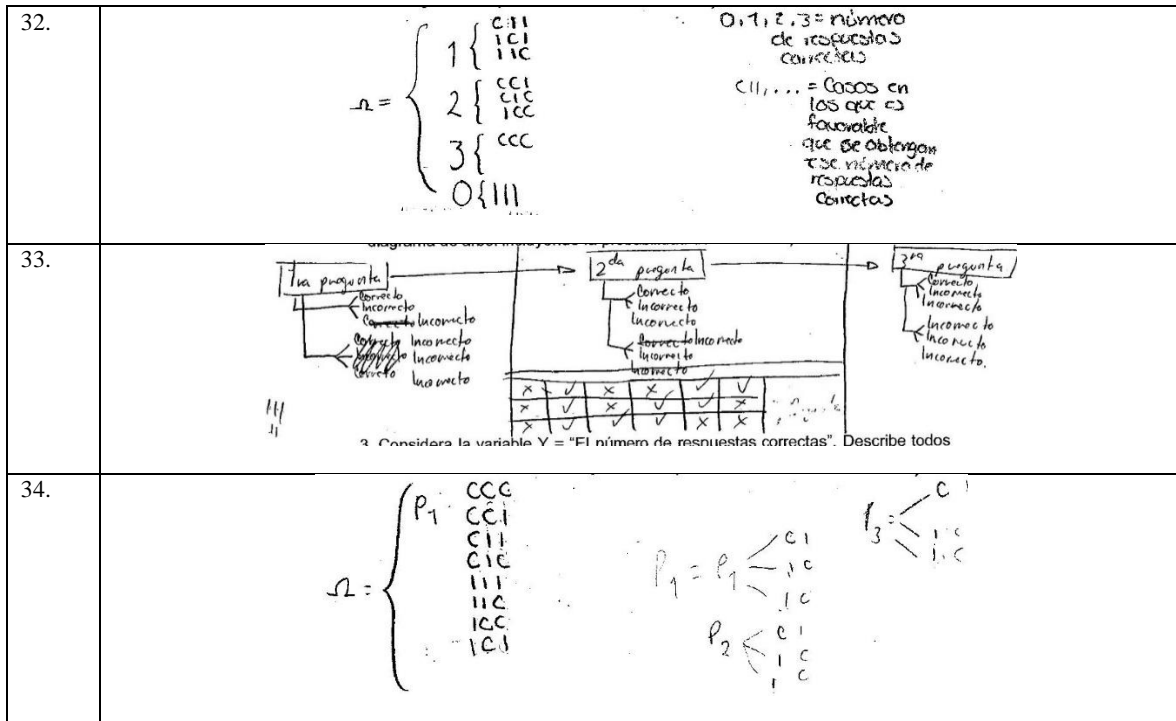 32.
Ω =
1 { CII
ICI
IIC
2 { CCI
CIC
ICC
3 { CCC
0 { III
0, 1, 2, 3 = número
de respuestas
correctas
CII, ... = Casos en
los que es
favorable
que se obtengan
ese número de
respuestas
correctas
33.
1ra pregunta
Correcto
Incorrecto
Incorrecto
Incorrecto
Incorrecto
Incorrecto
2da pregunta
Correcto
Incorrecto
Incorrecto
Incorrecto
Incorrecto
Incorrecto
3ra pregunta
Correcto
Incorrecto
Incorrecto
Incorrecto
Incorrecto
Incorrecto.
x ✓ x x ✓ ✓
x ✓ x ✓ ✓ x
x ✓ ✓ ✓ x x
3. Considera la variable Y = "El número de respuestas correctas". Describe todos
34.
Ω =
P1 CCC
CCI
CII
CIC
III
IIC
ICC
ICI
P1 = P1
C I
I C
I C
P2
C I
I C
I C
P3 =
C I
I C
I C